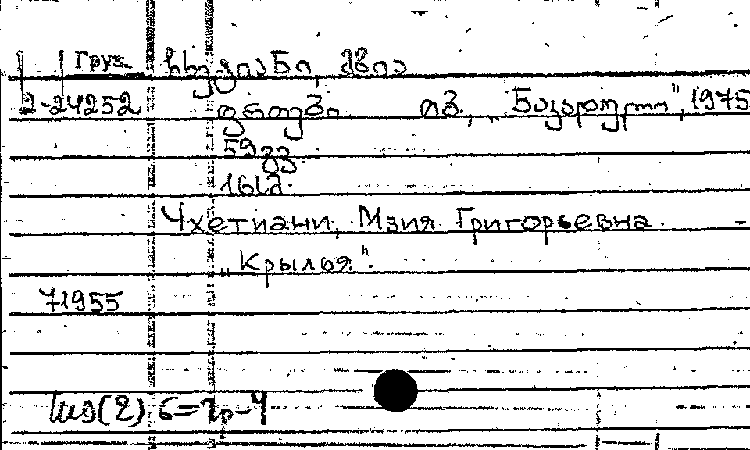 Груз. ჩხეტიანი, მზია
2-24252 ფრთები თბ., „ნაკადული", 1975
59გვ.
16სმ.
Чхетиани, Мзия Григорьевна
„Крылья".
71955